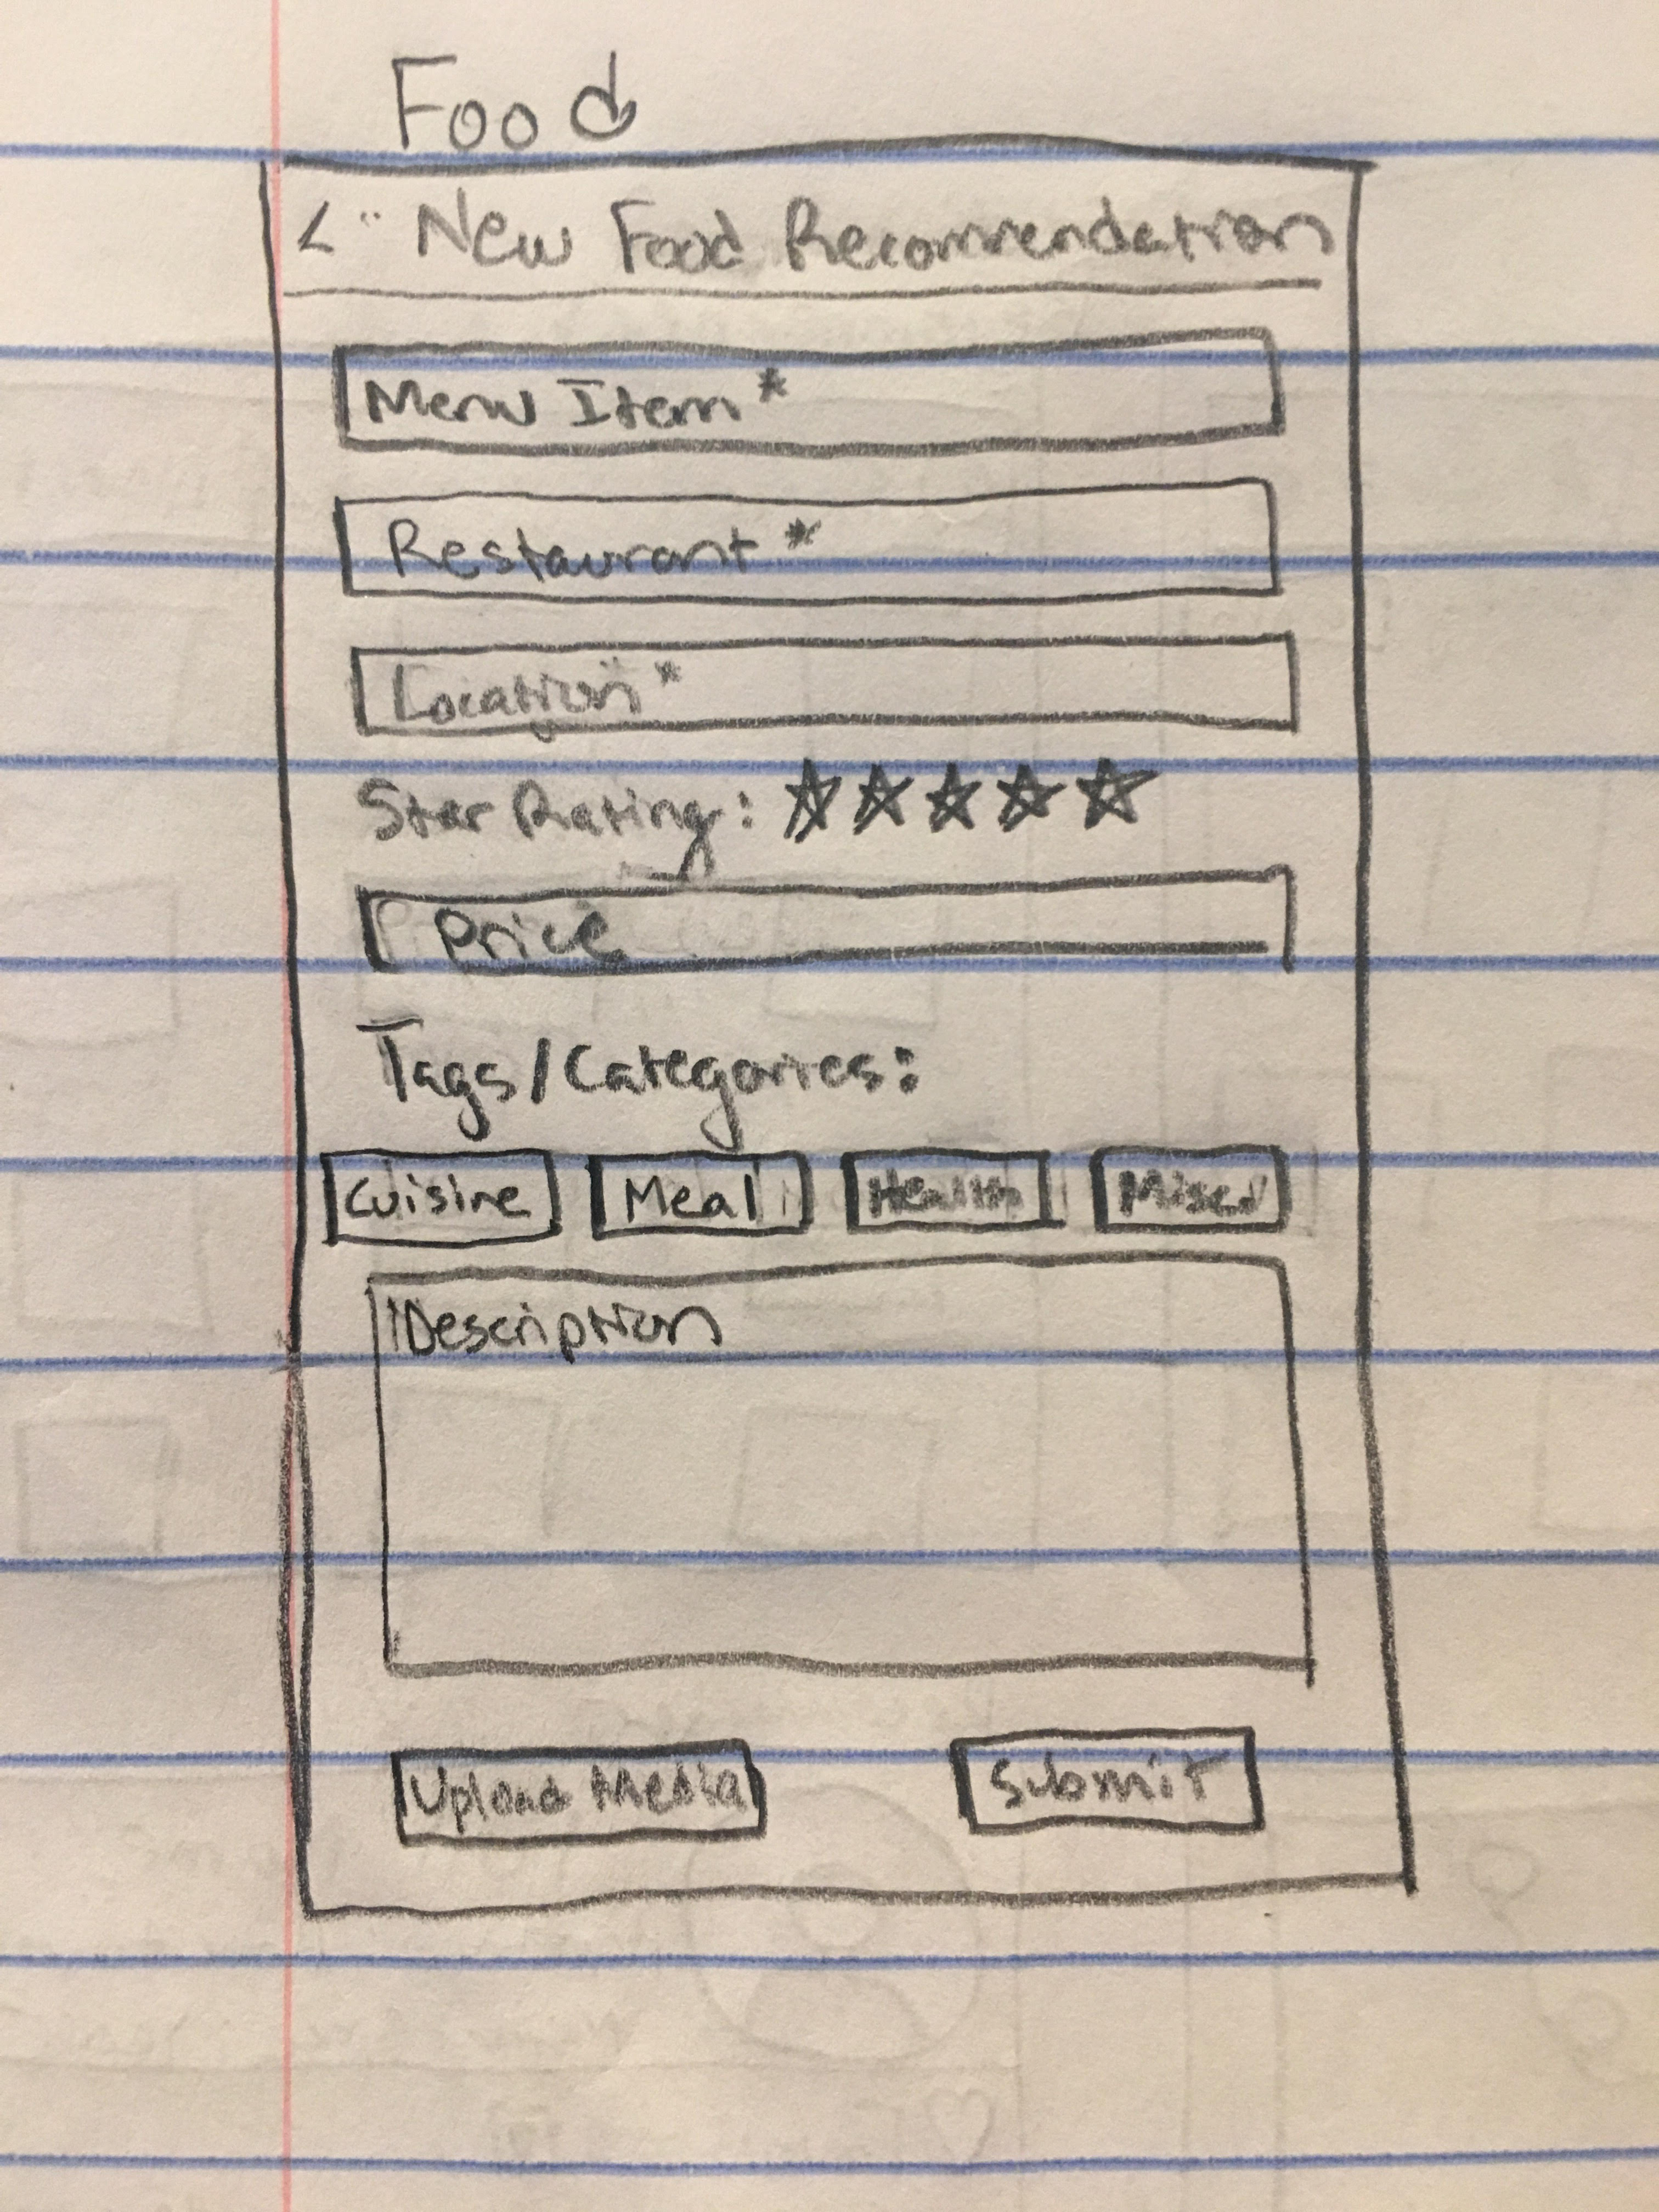 Food
< New Food Recommendation
Menu Item*
Restaurant*
Location*
Star Rating:
Price
Tags/Categories:
Cuisine Meal Health
Description
Upload Media Submit